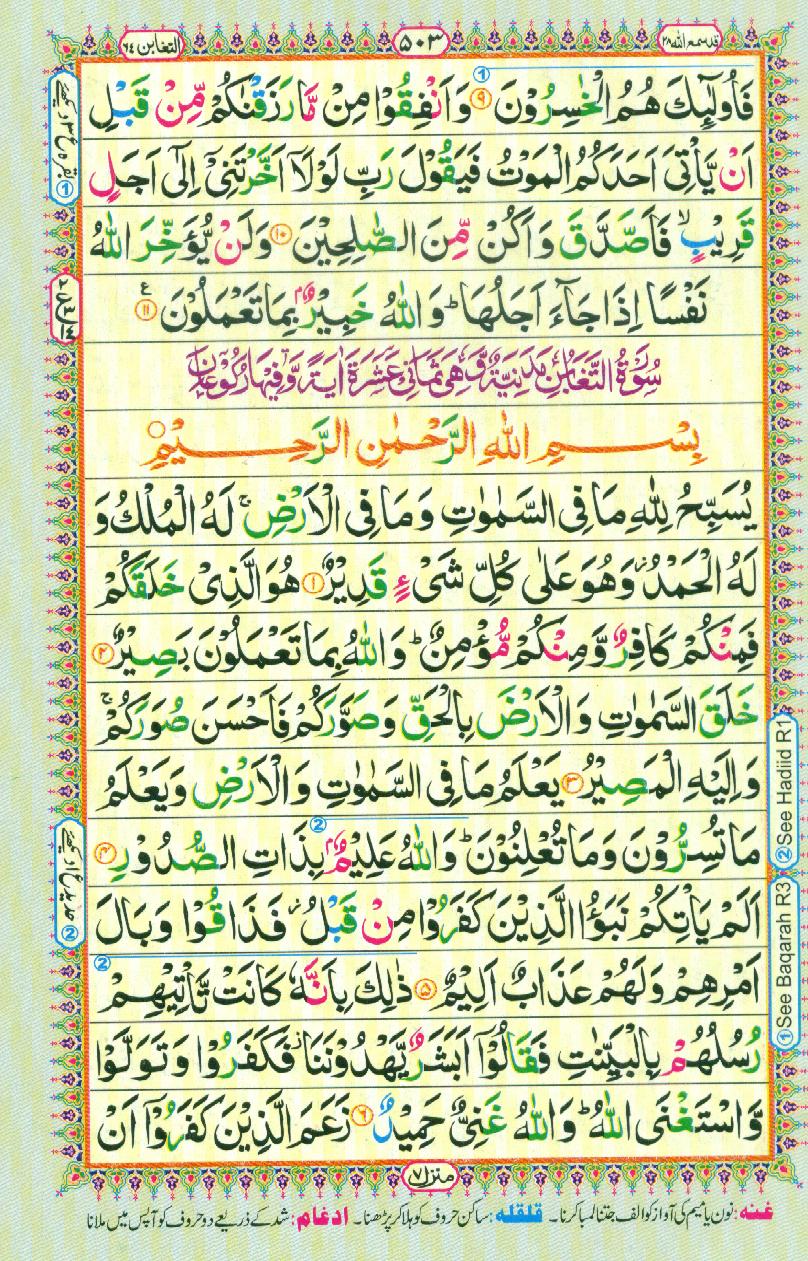 قد سمع الله ٢٨
٥٠٣
التغابن ٦٤
فَاُولٰٓئِكَ هُمُ الْخٰسِرُوْنَ ۹ وَاَنْفِقُوْا مِنْ مَّا رَزَقْنٰكُمْ مِّنْ قَبْلِ
اَنْ يَّاْتِىَ اَحَدَكُمُ الْمَوْتُ فَيَقُوْلَ رَبِّ لَوْلَاۤ اَخَّرْتَنِىْۤ اِلٰٓى اَجَلٍ
قَرِيْبٍ ۙ فَاَصَّدَّقَ وَاَكُنْ مِّنَ الصّٰلِحِيْنَ ۱۰ وَلَنْ يُّؤَخِّرَ اللّٰهُ
نَفْسًا اِذَا جَآءَ اَجَلُهَا ؕ وَاللّٰهُ خَبِيْرٌۢ بِمَا تَعْمَلُوْنَ ۱۱ ع
سُوْرَةُ التَّغَابُنِ مَدَنِيَّةٌ وَّهِىَ ثَمَانِىَ عَشَرَةَ اٰيَةً وَّفِيْهَا رُكُوْعَانِ
بِسْمِ اللّٰهِ الرَّحْمٰنِ الرَّحِيْمِ
يُسَبِّحُ لِلّٰهِ مَا فِى السَّمٰوٰتِ وَمَا فِى الْاَرْضِ ۚ لَهُ الْمُلْكُ وَ
لَهُ الْحَمْدُ ؗ وَهُوَ عَلٰى كُلِّ شَىْءٍ قَدِيْرٌ ۱ هُوَ الَّذِىْ خَلَقَكُمْ
فَمِنْكُمْ كَافِرٌ وَّمِنْكُمْ مُّؤْمِنٌ ؕ وَاللّٰهُ بِمَا تَعْمَلُوْنَ بَصِيْرٌ ۲
خَلَقَ السَّمٰوٰتِ وَالْاَرْضَ بِالْحَقِّ وَصَوَّرَكُمْ فَاَحْسَنَ صُوَرَكُمْ ۚ
وَاِلَيْهِ الْمَصِيْرُ ۳ يَعْلَمُ مَا فِى السَّمٰوٰتِ وَالْاَرْضِ وَيَعْلَمُ
مَا تُسِرُّوْنَ وَمَا تُعْلِنُوْنَ ؕ وَاللّٰهُ عَلِيْمٌۢ بِذَاتِ الصُّدُوْرِ ۴
اَلَمْ يَاْتِكُمْ نَبَؤُا الَّذِيْنَ كَفَرُوْا مِنْ قَبْلُ ؗ فَذَاقُوْا وَبَالَ
اَمْرِهِمْ وَلَهُمْ عَذَابٌ اَلِيْمٌ ۵ ذٰلِكَ بِاَنَّهٗ كَانَتْ تَّاْتِيْهِمْ
رُسُلُهُمْ بِالْبَيِّنٰتِ فَقَالُوْۤا اَبَشَرٌ يَّهْدُوْنَنَا ؗ فَكَفَرُوْا وَتَوَلَّوْا
وَّاسْتَغْنَى اللّٰهُ ؕ وَاللّٰهُ غَنِىٌّ حَمِيْدٌ ۶ زَعَمَ الَّذِيْنَ كَفَرُوْۤا اَنْ
منزل ۷
غنه: نون یا میم کی آواز کو الف جتنا لمبا کرنا۔ قلقله: ساکن حروف کو ہلا کر پڑھنا۔ ادغام: شد کے ذریعے دو حروف کو آپس میں ملانا
② See Hadiid R1
① See Baqarah R3